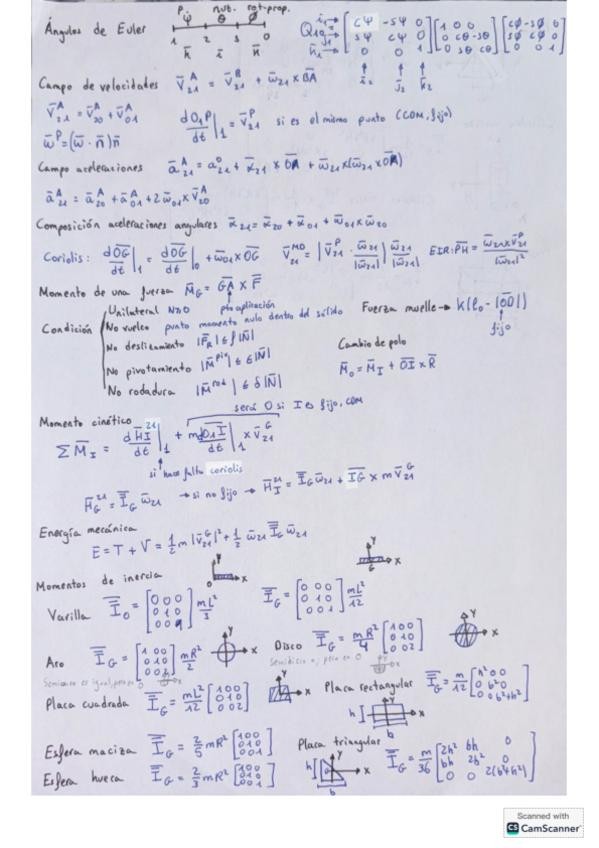 Ángulos de Euler P ψ̇ nut. θ̇ rot-prop. φ̇ 1 2 3 0 n̄ ī n̄
[cψ -sψ 0; sψ cψ 0; 0 0 1] [1 0 0; 0 cθ -sθ; 0 sθ cθ] [cφ -sφ 0; sφ cφ 0; 0 0 1]
Campo de velocidades V̄₂₁ᴬ = V̄₂₁ᴮ + ω̄₂₁ × BA
V̄₂₁ᴬ = V̄₂₀ᴬ + V̄₀₁ᴬ dO₁P/dt |₁ = V̄₂₁ᴾ si es el mismo punto (COM, fijo)
ω̄ᴾ = (ω̄ · n̄) n̄
Campo aceleraciones ā₂₁ᴬ = a₂₁⁰ + ᾱ₂₁ × OA + ω̄₂₁ × (ω̄₂₁ × OA)
ā₂₁ᴬ = ā₂₀ᴬ + ā₀₁ᴬ + 2ω̄₀₁ × V̄₂₀ᴬ
Composición aceleraciones angulares ᾱ₂₁ = ᾱ₂₀ + ᾱ₀₁ + ω̄₀₁ × ω̄₂₀
Coriolis: dOG/dt |₁ = dOG/dt |₀ + ω̄₀₁ × OG V̄₂₁ᴹᴰ = |V̄₂₁ᴾ · ω̄₂₁/|ω̄₂₁|| ω̄₂₁/|ω̄₂₁| EIR: PH = ω̄₂₁ × V̄₂₁ᴾ/|ω̄₂₁|²
Momento de una fuerza M̄_G = GA × F̄
pto aplicación
Condición
Unilateral N≥0
No vuelco punto momento nulo dentro del sólido
No deslizamiento |F̄_R| ≤ f|N̄|
No pivotamiento |M̄ᵖⁱᵛ| ≤ ε|N̄|
No rodadura |M̄ʳᵒᵈ| ≤ δ|N̄|
Fuerza muelle → k(l₀ - |OD|)
fijo
Cambio de polo
M̄₀ = M̄_I + OI × R̄
será 0 si I es fijo, COM
Momento cinético
Σ M̄_I = dH̄_I²¹/dt |₁ + m dO₁I/dt |₁ × V̄₂₁ᴳ
si hace falta coriolis
H̄_G²¹ = I_G ω̄₂₁ → si no fijo → H̄_I²¹ = I_G ω̄₂₁ + IG × m V̄₂₁ᴳ
Energía mecánica
E = T + V = 1/2 m |V̄₂₁ᴳ|² + 1/2 ω̄₂₁ I_G ω̄₂₁
Momentos de inercia
Varilla I₀ = [0 0 0; 0 1 0; 0 0 1] mL²/3 I_G = [0 0 0; 0 1 0; 0 0 1] mL²/12
Aro I_G = [1 0 0; 0 1 0; 0 0 2] mR²/2 Disco I_G = mR²/4 [1 0 0; 0 1 0; 0 0 2]
Placa cuadrada I_G = mL²/12 [1 0 0; 0 1 0; 0 0 2] Placa rectangular I_G = m/12 [h² 0 0; 0 b² 0; 0 0 b²+h²]
Esfera maciza I_G = 2/5 mR² [1 0 0; 0 1 0; 0 0 1] Placa triangular I_G = m/36 [2h² bh 0; bh 2b² 0; 0 0 2(b²+h²)]
Esfera hueca I_G = 2/3 mR² [1 0 0; 0 1 0; 0 0 1]
Scanned with
CS CamScanner